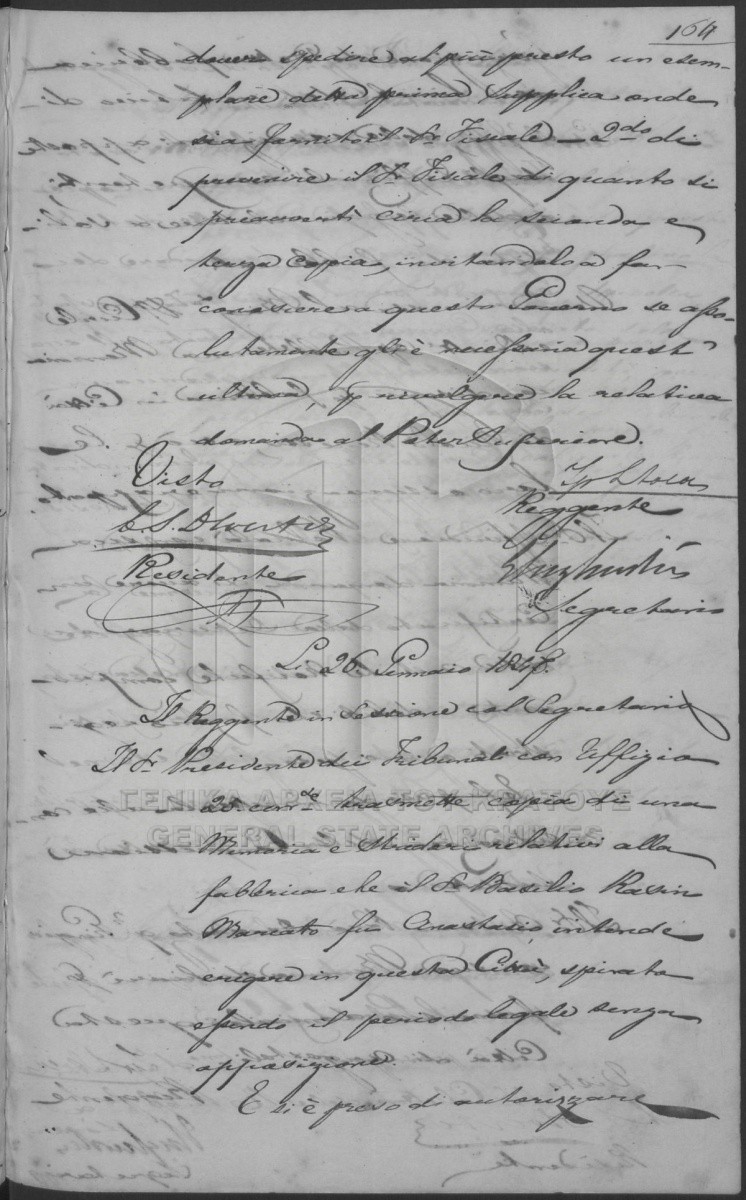 164
dover spedire al più presto un esem-
plare della prima Supplica onde
sia fornito il Sr. Fiscale — 2do. di
prevenire il Sr. Fiscale di quanto si
circa la seconda e
senza copia, invitandolo a far
conoscere a questo Governo se asso-
lutamente gli è necessaria quest'
ultima, p rivolgere la relativa
domanda al Pater Superiore.
Visto
Reggente
Residente
Segretario
Li 26. Gennaio 184
Il Reggente in Sessione col Segretario
Il Sr. Presidente dei Tribunali con Uffizio
25 corrte. trasmette copia di una
ΓΕΝΙΚΑ ΑΡΧΕΙΑ ΤΟΥ ΚΡΑΤΟΥΣ
GENERAL STATE ARCHIVES
Memoria e Stridori relativi alla
fabbrica che il Sr. Basilio
fu Anastasio, intende
erigere in questa Città, spirato
essendo il periodo legale senza
opposizione.
E si è preso di autorizzare